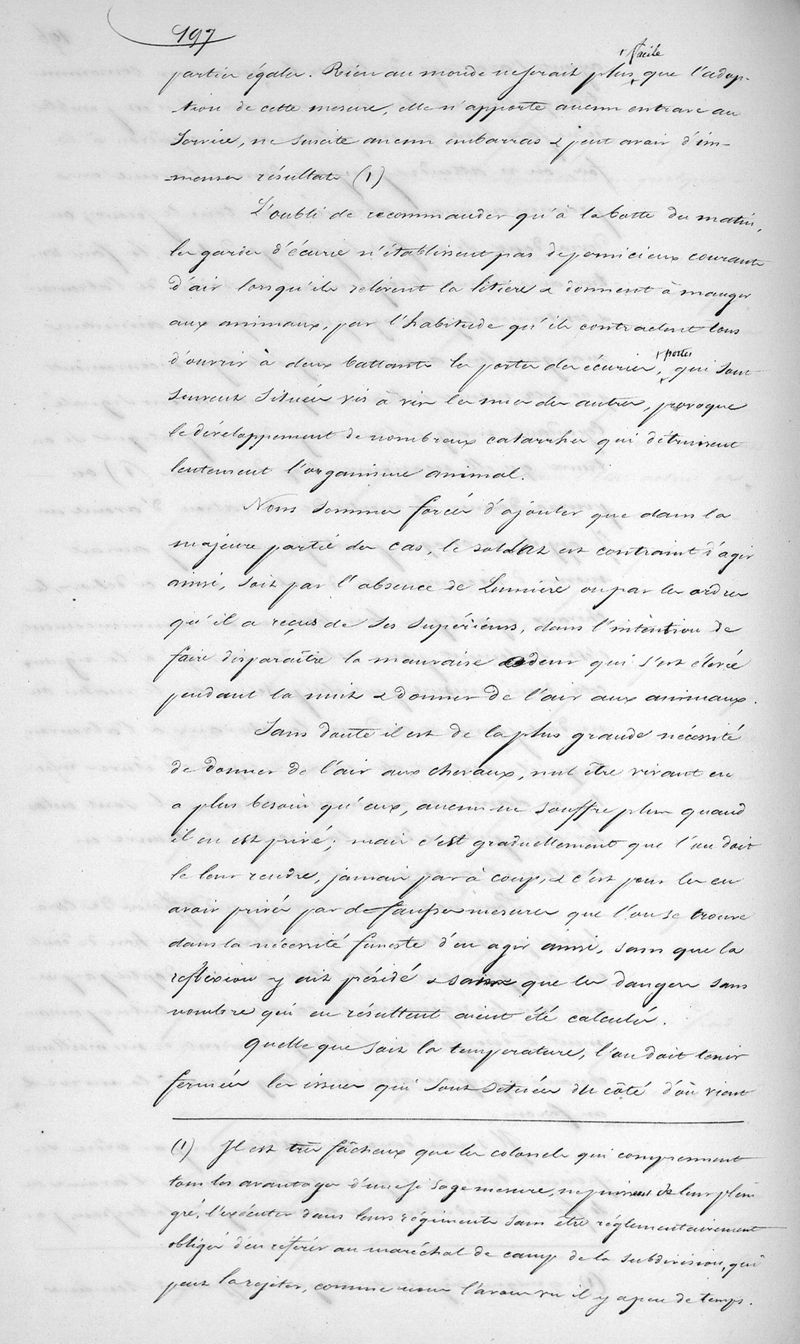 197
parties égales. Rien au monde ne serait plus facile que l'adop-
tion de cette mesure, elle n'apporte aucun entrave au
service, ne suscite aucun embarras & peut avoir d'im-
-menses résultats (1)
L'oubli de recommander qu'à la botte du matin,
les gardes d'écurie n'établissent pas de pernicieux courants
d'air lorsqu'ils relèvent la litière & donnent à manger
aux animaux, par l'habitude qu'ils contractent tous
d'ouvrir à deux battants les portes des écuries, portes qui sont
souvent situées vis à vis les unes des autres, provoque
le développement de nombreux catarrhes qui détruisent
lentement l'organisme animal.
Nous sommes forcés d'ajouter que dans la
majeure partie des cas, le soldat est contraint d'agir
ainsi, soit par l'absence de Lumière ou par les ordres
qu'il a reçus de ses supérieurs, dans l'intention de
faire disparaître la mauvaise odeur qui s'est élevée
pendant la nuit & donner de l'air aux animaux.
Sans doute il est de la plus grande nécessité
de donner de l'air aux chevaux, nul être vivant en
a plus besoin qu'eux, aucun ne souffre plus quand
il en est privé; mais c'est graduellement que l'on doit
le leur rendre, jamais par à coup, & c'est pour les en
avoir privés par de fausses mesures que l'on se trouve
dans la nécessité funeste d'en agir ainsi, sans que la
réflexion y ait présidé & sans que les dangers sans
nombre qui en résultent aient été calculés.
Quelle que soit la température, l'on doit tenir
fermées les issues qui sont situées du côté d'où vient
(1) Il est très fâcheux que les colonels qui comprennent
tous les avantages d'une si sage mesure, ne puissent de leur plein
gré, l'exécuter dans leurs régiments sans être réglementairement
obligés d'en référer au maréchal de camp de la subdivision, qui
peut la rejeter, comme nous l'avons vu il y a peu de temps.